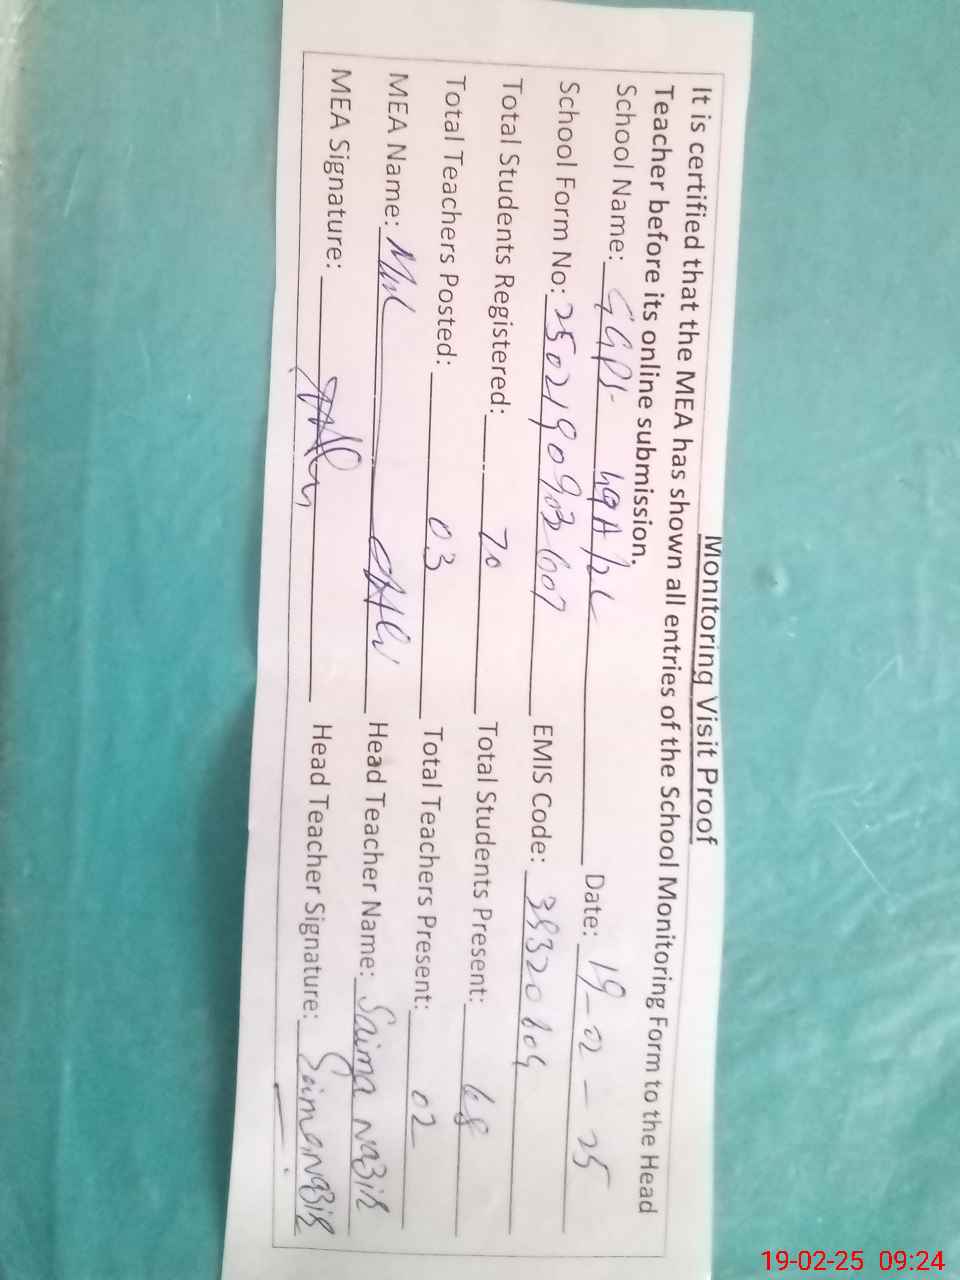 Monitoring Visit Proof
It is certified that the MEA has shown all entries of the School Monitoring Form to the Head
Teacher before its online submission.
School Name: GGPS 49A/2L Date: 19-02-25
School Form No: 250219090303607 EMIS Code: 38320604
Total Students Registered: 70 Total Students Present: 68
Total Teachers Posted: 03 Total Teachers Present: 02
MEA Name: Head Teacher Name: Saima Nazir
MEA Signature: Head Teacher Signature: Saima Nazir
19-02-25 09:24